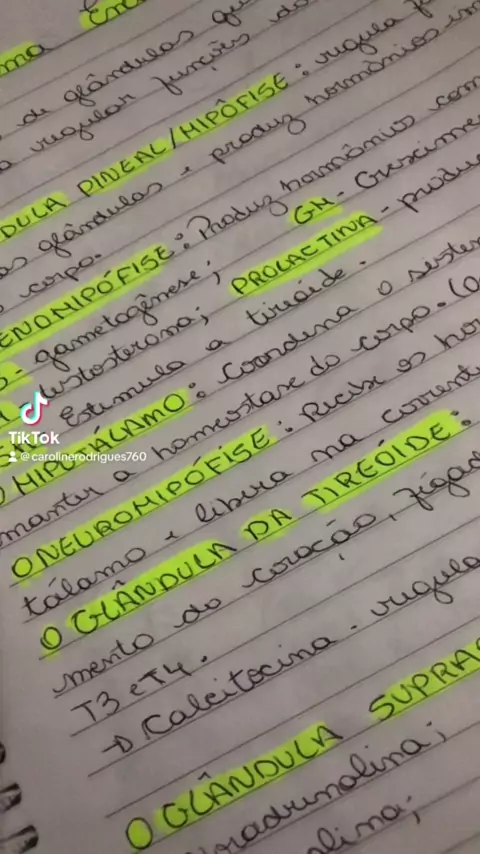 de glândulas que
regular funções do
DULA PINEAL/HIPÓFISE: regula
as glândulas e produz hormônios
corpo.
ENOHIPÓFISE: Produz hormônios com
gametogênese; GH - Crescime
testosterona; PROLACTINA - produ
Estimula a tireóide.
O HIPOTÁLAMO: Coordena o sistem
manter a homeostase do corpo. (O
O NEUROHIPÓFISE: Recebe os hor
tálamo e libera na corrent
O GLÂNDULA DA TIREÓIDE:
mento do coração, fígad
T3 e T4.
→ Calcitocina - regula
O GLÂNDULA SUPRA
oradrenalina;
lina;
TikTok
@carolinerodrigues760